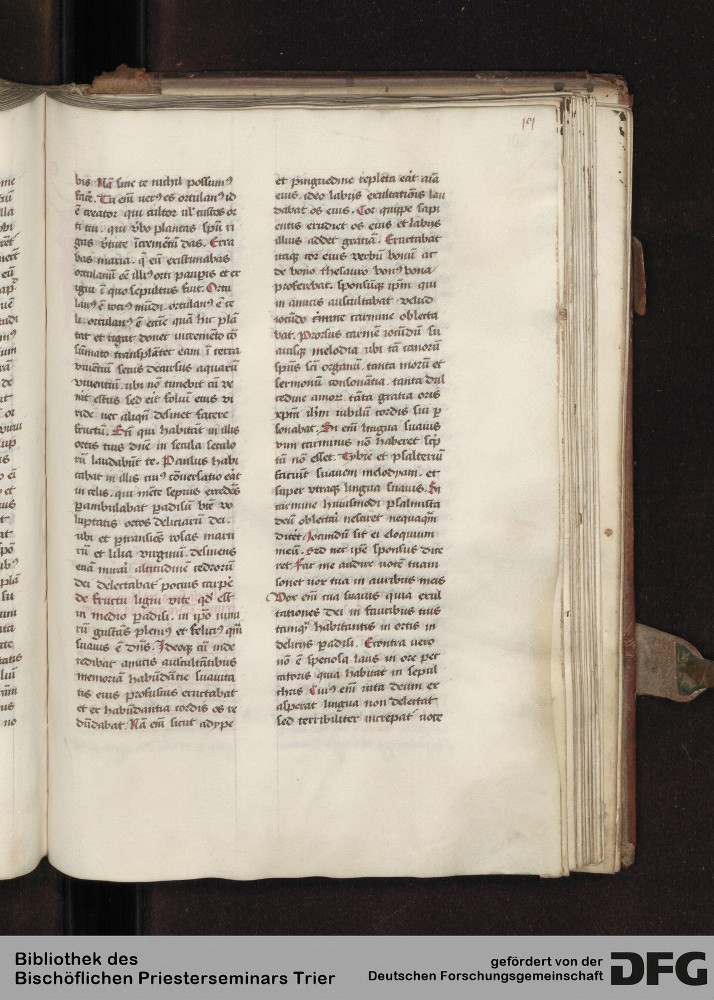 191
bis Nā sine te nichil possumꝰ
fac̄e. Tu em̄ verꝰ es ortulanꝰ id
ē creator qui cultor ul' custos or
ti tui. qui v̓bo plantas spū ri
gas v̓tute īcremētū das. Erra
bas maria. q̄ eū existimabas
ortulanū eē illiꝰ orti paupis et ex
igui ē quo sepultus fuit. Ortu
lanꝰ ē totiꝰ mūdi. ortulanꝰ ē ce
li. ortulanꝰ ē eccīe quā hic plā
tat et rigat donec incremēto cō
sūmato transplātet eam ī terra
viuētiū secus decursus aquarū
viuentiū. ubi nō timebit cū ve
nit estus sed eīt foliū eius vi
ride nec aliqn̄ desinet facere
fructū. Etī qui habitāt in illis
ortis tuis dn̄e in secula seculo
rū laudabūt te. Paulus habi
tabat in illis cuiꝰ cōuersatio eāt
in celis. qui mēte sepius excedēs
ꝑambulabat ꝑadisū vite vo
luptatis ortos deliciarū dei.
ubi et ꝑtransiēs rosas marti
rū et lilia virginū. desinens
etiā mirai altitudinē cedrorū
dei delectabat pocius carpe
de fructu ligni vite qd̄ est
in medio ꝑadisi. in ip̄o numi
rū gustās plenꝰ et feliciꝰ qm̄
suauis ē dn̄s. Ideoqꝫ cū inde
redibat amicis auscultātibus
memoriā habūdātie suauita
tis eius profusius eructabat
et ex habūdantia cordis os re
dūdabat. Nā em̄ sicut adype
et pinguedine repleta eāt aīa
eius. ideo labijs exultatiōis lau
dabat os eius. Cor quippe sapi
entis erudiet os eius et labijs
illius addet gratiā. Eructabat
itaqꝫ cor eius verbū bonū ac
de bono thesauro bonꝰ bona
proferebat. sponsūqꝫ ip̄m qui
in amicis auscultabat velud
iocūdo carmine oblecta
bat. Prorsus carmē iocūdū su
auisqꝫ melodia ubi tā canorū
spūs sc̄i organū. tanta morū et
sermonū consonātia. tanta dul
cedine amor. tāta gratia oris
xp̄m ih̄m iubilū cordis sui ꝑ
sonabat. Si em̄ lingua suauis
vim carminis nō haberet scp̄
tū nō esset. Tybie et psalteriū
faciūt suauem melodyam. et
super vtraqꝫ lingua suauis. Si
carmine huiusmodi psalmista
deū oblectari nesciret nequaq̄m
diceret Iocūdū sit ei eloquium
meū. Sed nec ip̄e sponsus dice
ret. Fac me audire vocē tuam
sonet vox tua in auribus meis
Vox em̄ tua suauis quia exul
tationes dei in faucibus tuis
tamqꝫ habitantis in ortis in
delicijs ꝑadisi. Econtra vero
nō ē speciosa laus in ore pec
catoris quia habitat in sepul
chris. Cuiꝰ em̄ vita deum ex
asperat lingua non delectat
sed terribiliter increpat voce
Bibliothek des
Bischöflichen Priesterseminars Trier
gefördert von der
Deutschen Forschungsgemeinschaft
DFG